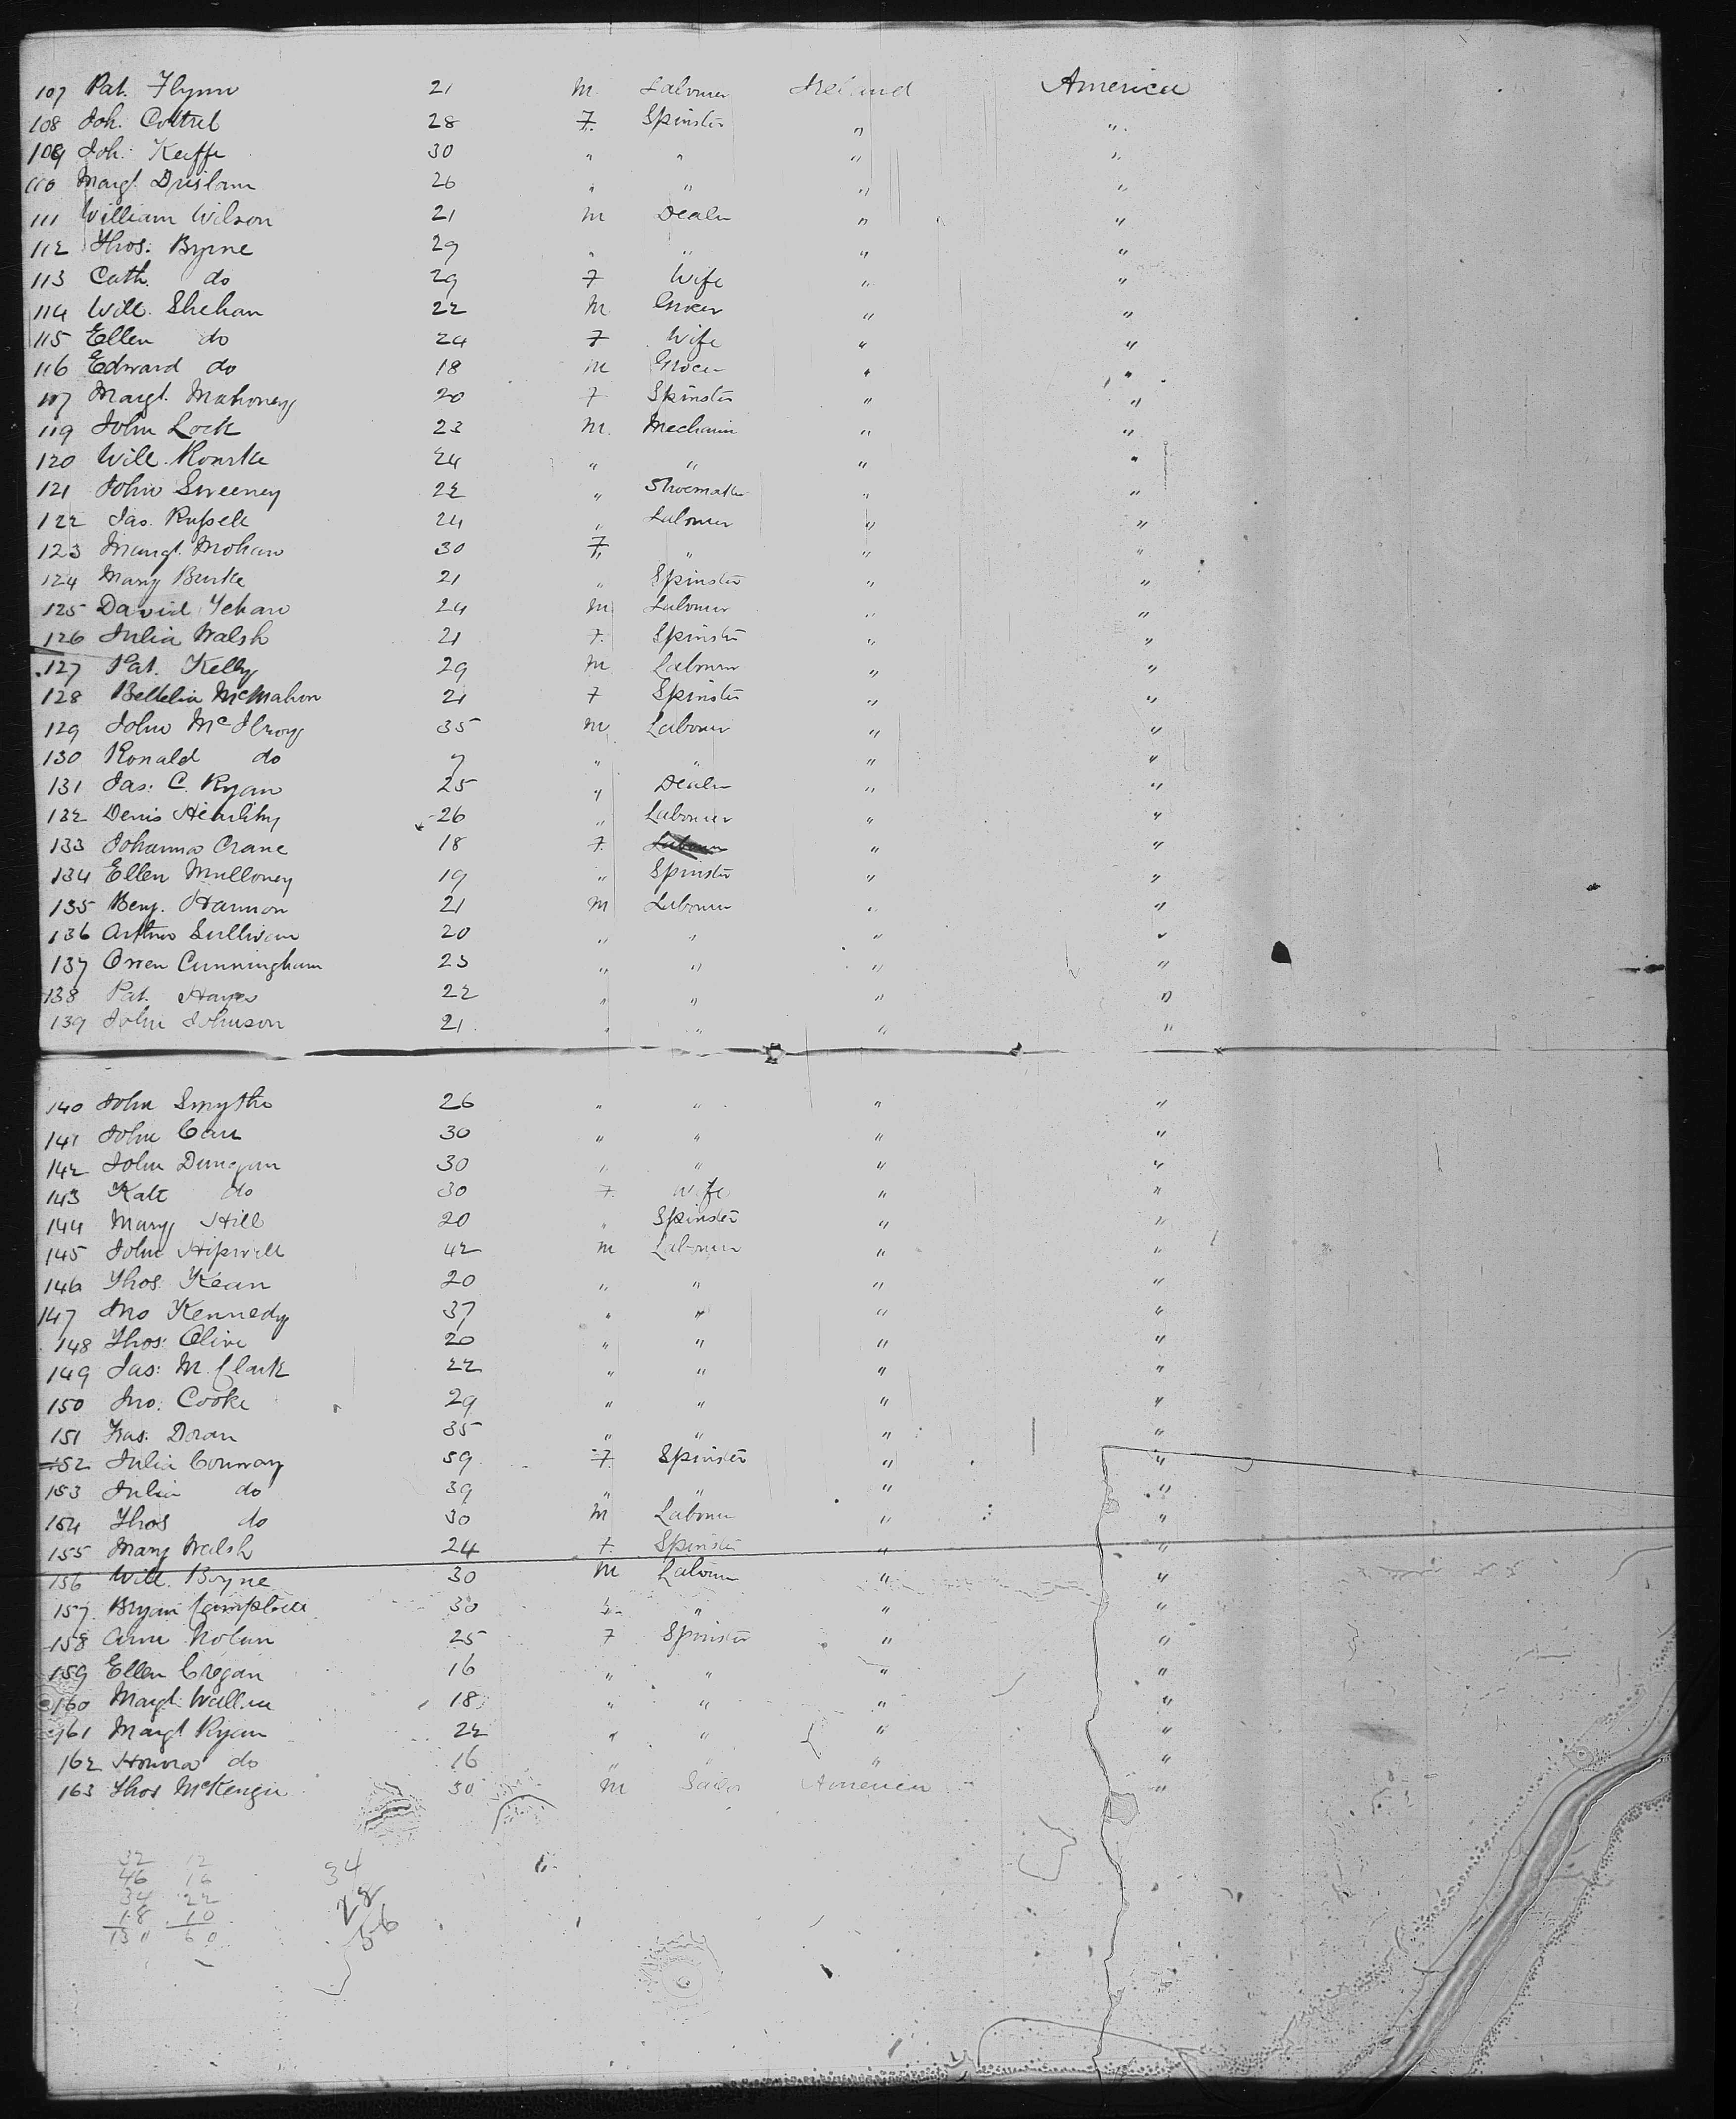 107 Pat. Flynn 21 M Labourer Ireland America
108 Joh. Cottrel 28 F. Spinster " "
109 Joh: Keiffe 30 " " " "
110 Margt. Drislane 26 " " " "
111 William Wilson 21 M Dealer " "
112 Thos: Byrne 29 " " " "
113 Cath. do 29 F Wife " "
114 Will. Shehan 22 M Grocer " "
115 Ellen do 24 F Wife " "
116 Edward do 18 M Grocer " "
117 Margt. Mahoney 20 F Spinster " "
119 John Lock 23 M. Mechanic " "
120 Will. Rourke 24 " " " "
121 John Sweeney 22 " Shoemaker " "
122 Jas. Russell 24 " Labourer " "
123 Margt. Mohan 30 F " " "
124 Mary Burke 21 " Spinster " "
125 David 24 M Labourer " "
126 Julia Walsh 21 F. Spinster " "
127 Pat. Kelly 29 M Labourer " "
128 McMahon 21 F Spinster " "
129 John McIlroy 35 M Labourer " "
130 Ronald do 7 " " " "
131 Jas: C. Ryan 25 " Dealer " "
132 Denis 26 " Labourer " "
133 Johanna Crane 18 F. " "
134 Ellen Mulloney 19 " Spinster " "
135 Benj. Hannon 21 M Labourer " "
136 Arthur Sullivan 20 " " " "
137 Owen Cunningham 23 " " " "
138 Pat. Hayes 22 " " " "
139 John Johnson 21 " " " "
140 John Smythe 26 " " " "
141 John Carr 30 " " " "
142 John Dungan 30 " " " "
143 Kate do 30 F. Wife " "
144 Mary Hill 20 " Spinster " "
145 John Hipwell 42 M Labourer " "
146 Thos. Kean 20 " " " "
147 Jno Kennedy 37 " " " "
148 Thos: Olive 20 " " " "
149 Jas: M. Clark 22 " " " "
150 Jno: Cooke 29 " " " "
151 Doran 35 " " " "
152 Julia Conway 59 F. Spinster " "
153 Julia do 39 " " " "
154 Thos do 30 M Labourer " "
155 Mary Walsh 24 F. Spinster " "
156 Will. Boyne 30 M Labourer " "
157 Bryan Campbell 30 " " " "
158 Ann Nolan 25 F Spinster " "
159 Ellen Cregan 16 " " " "
160 Margt. 18 " " " "
161 Margt Ryan 22 " " " "
162 Honora do 16 " " " "
163 Thos McKenzie 30 M Sailor America "
32 12
46 16 34
34 22 28
18 10 56
130 60